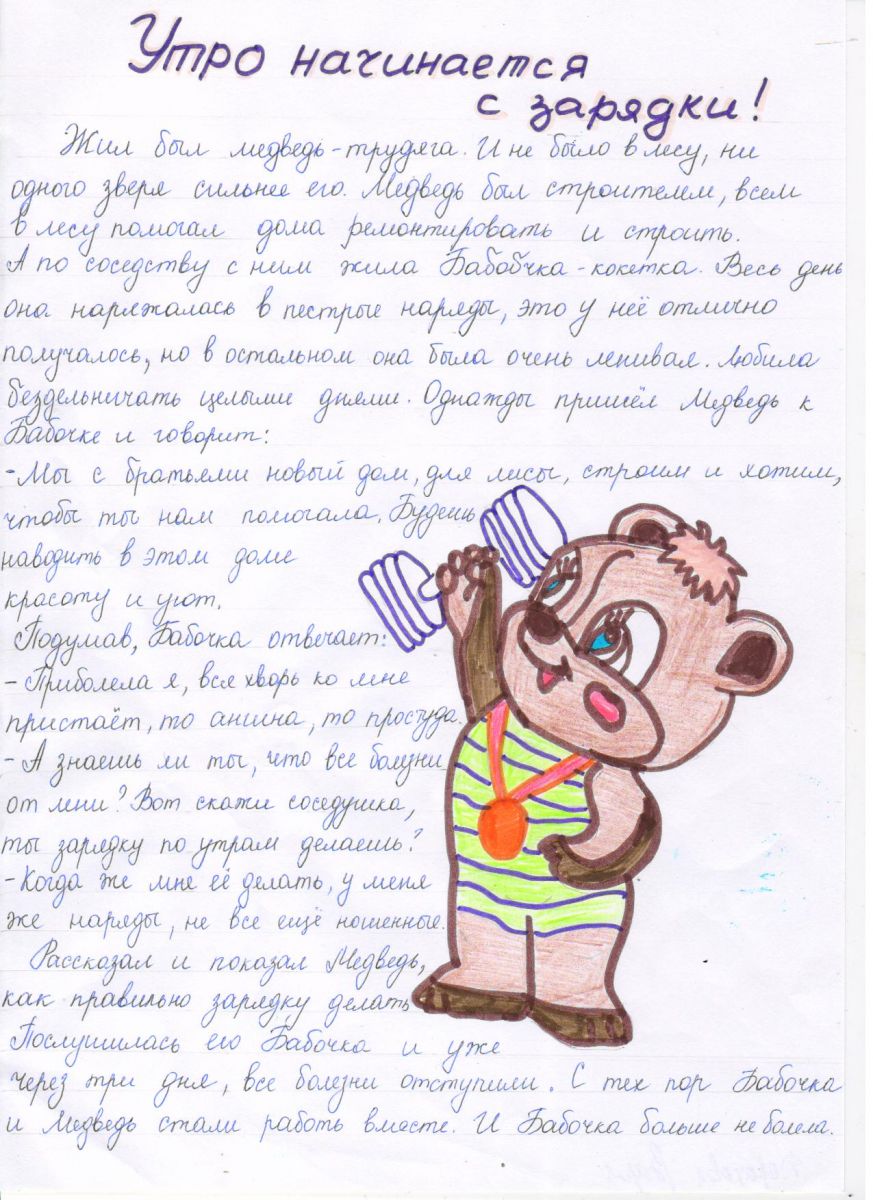 Утро начинается
с зарядки!
Жил был медведь-трудяга. И не было в лесу, ни
одного зверя сильнее его. Медведь был строителем, всем
в лесу помогал дома ремонтировать и строить.
А по соседству с ним жила Бабобчка-кокетка. Весь день
она наряжалась в пестрые наряды, это у неё отлично
получалось, но в остальном она была очень ленивая. Любила
бездельничать целыми днями. Однажды пришёл Медведь к
Бабочке и говорит:
-Мы с братьями новый дом, для лисы, строим и хотим,
чтобы ты нам помогала. Будешь
наводить в этом доме
красоту и уют.
Подумав, Бабочка отвечает:
- Приболела я, вся хворь ко мне
пристаёт, то ангина, то простуда.
- А знаешь ли ты, что все болезни
от лени? Вот скажи соседушка,
ты зарядку по утрам делаешь?
-Когда же мне её делать, у меня
же наряды, не все ещё ношенные.
Рассказал и показал Медведь,
как правильно зарядку делать
Послушилась его Бабочка и уже
через три дня, все болезни отступили. С тех пор Бабочка
и Медведь стали работь вместе. И Бабочка больше не болела.